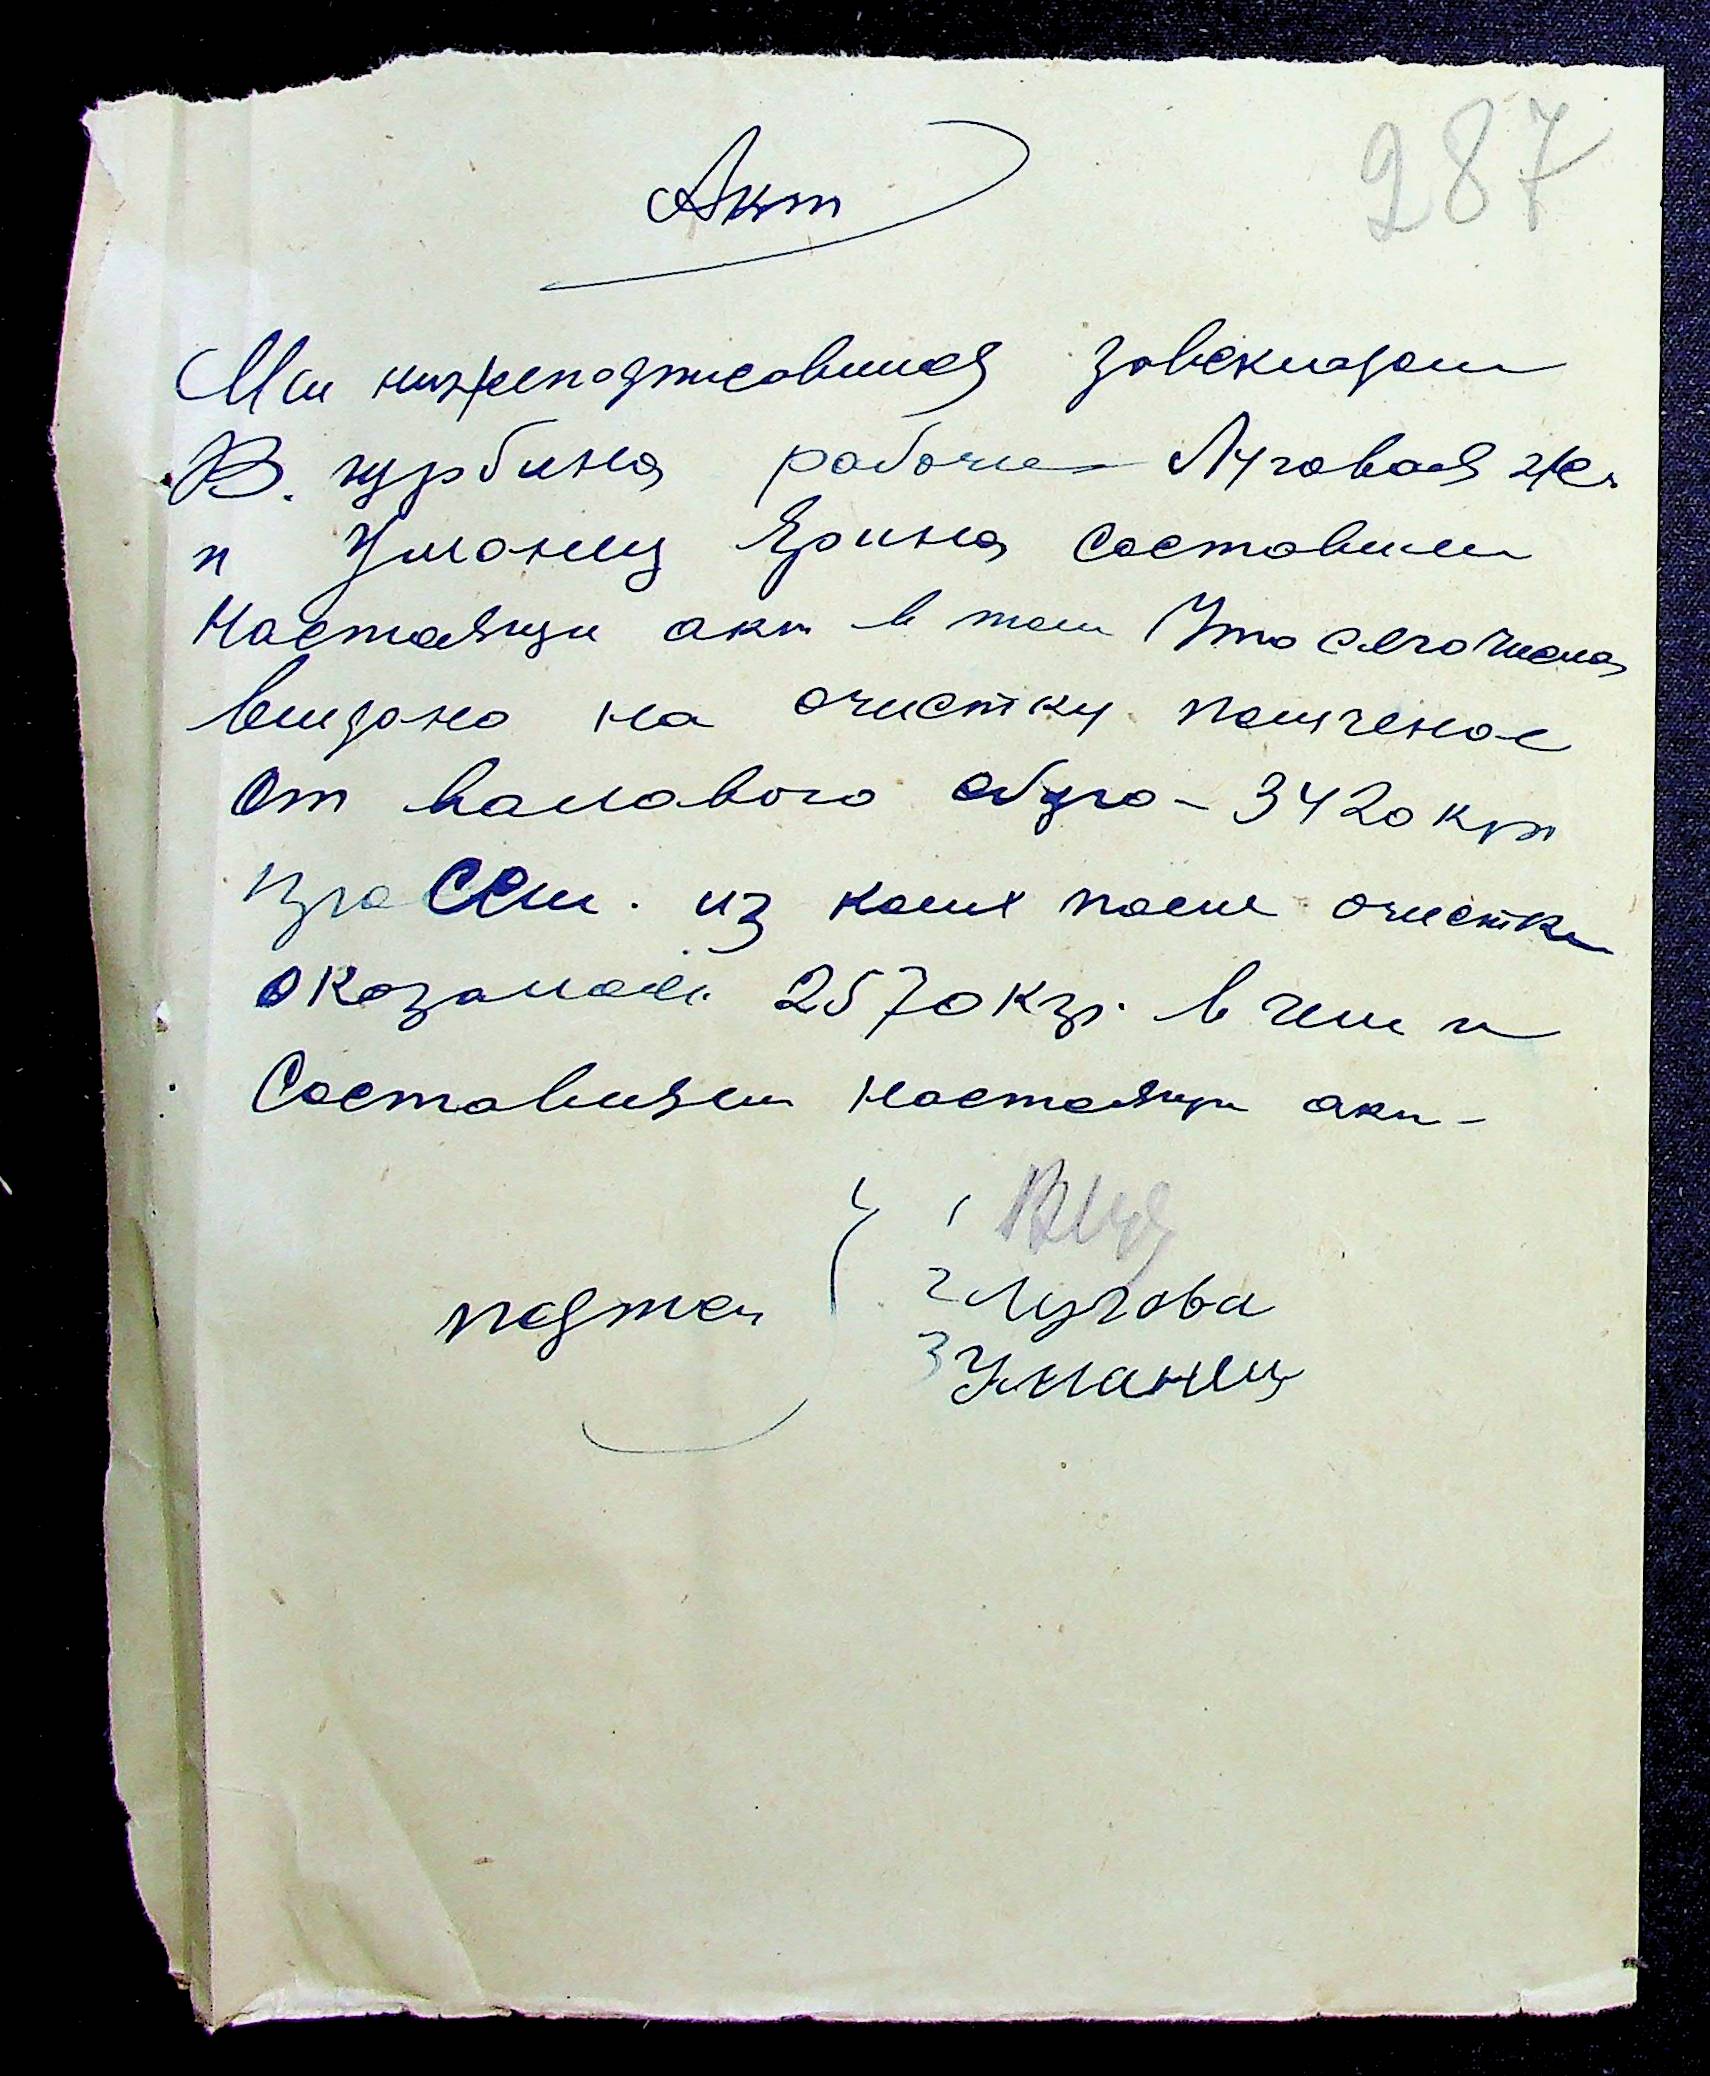 287
Акт
Мы нижеподписавшиеся завскладом
В. Щурбина рабочие Луговая Же.
и Уманец Ярина составили
Настоящи акт в том Что сего числа
видано на очистку полученое
От валового обуго - 3420 кгр
проСем. из коих после очистки
оказалось 2570 кгр. в чем и
Составлям настоящи акт -
подписи
1
2 Лугова
3 Уманец